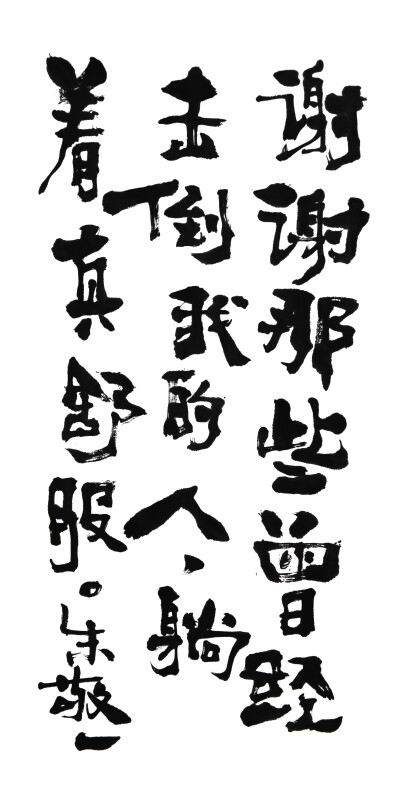 谢谢那些曾经
击倒我的人、躺
着真舒服。朱敬一